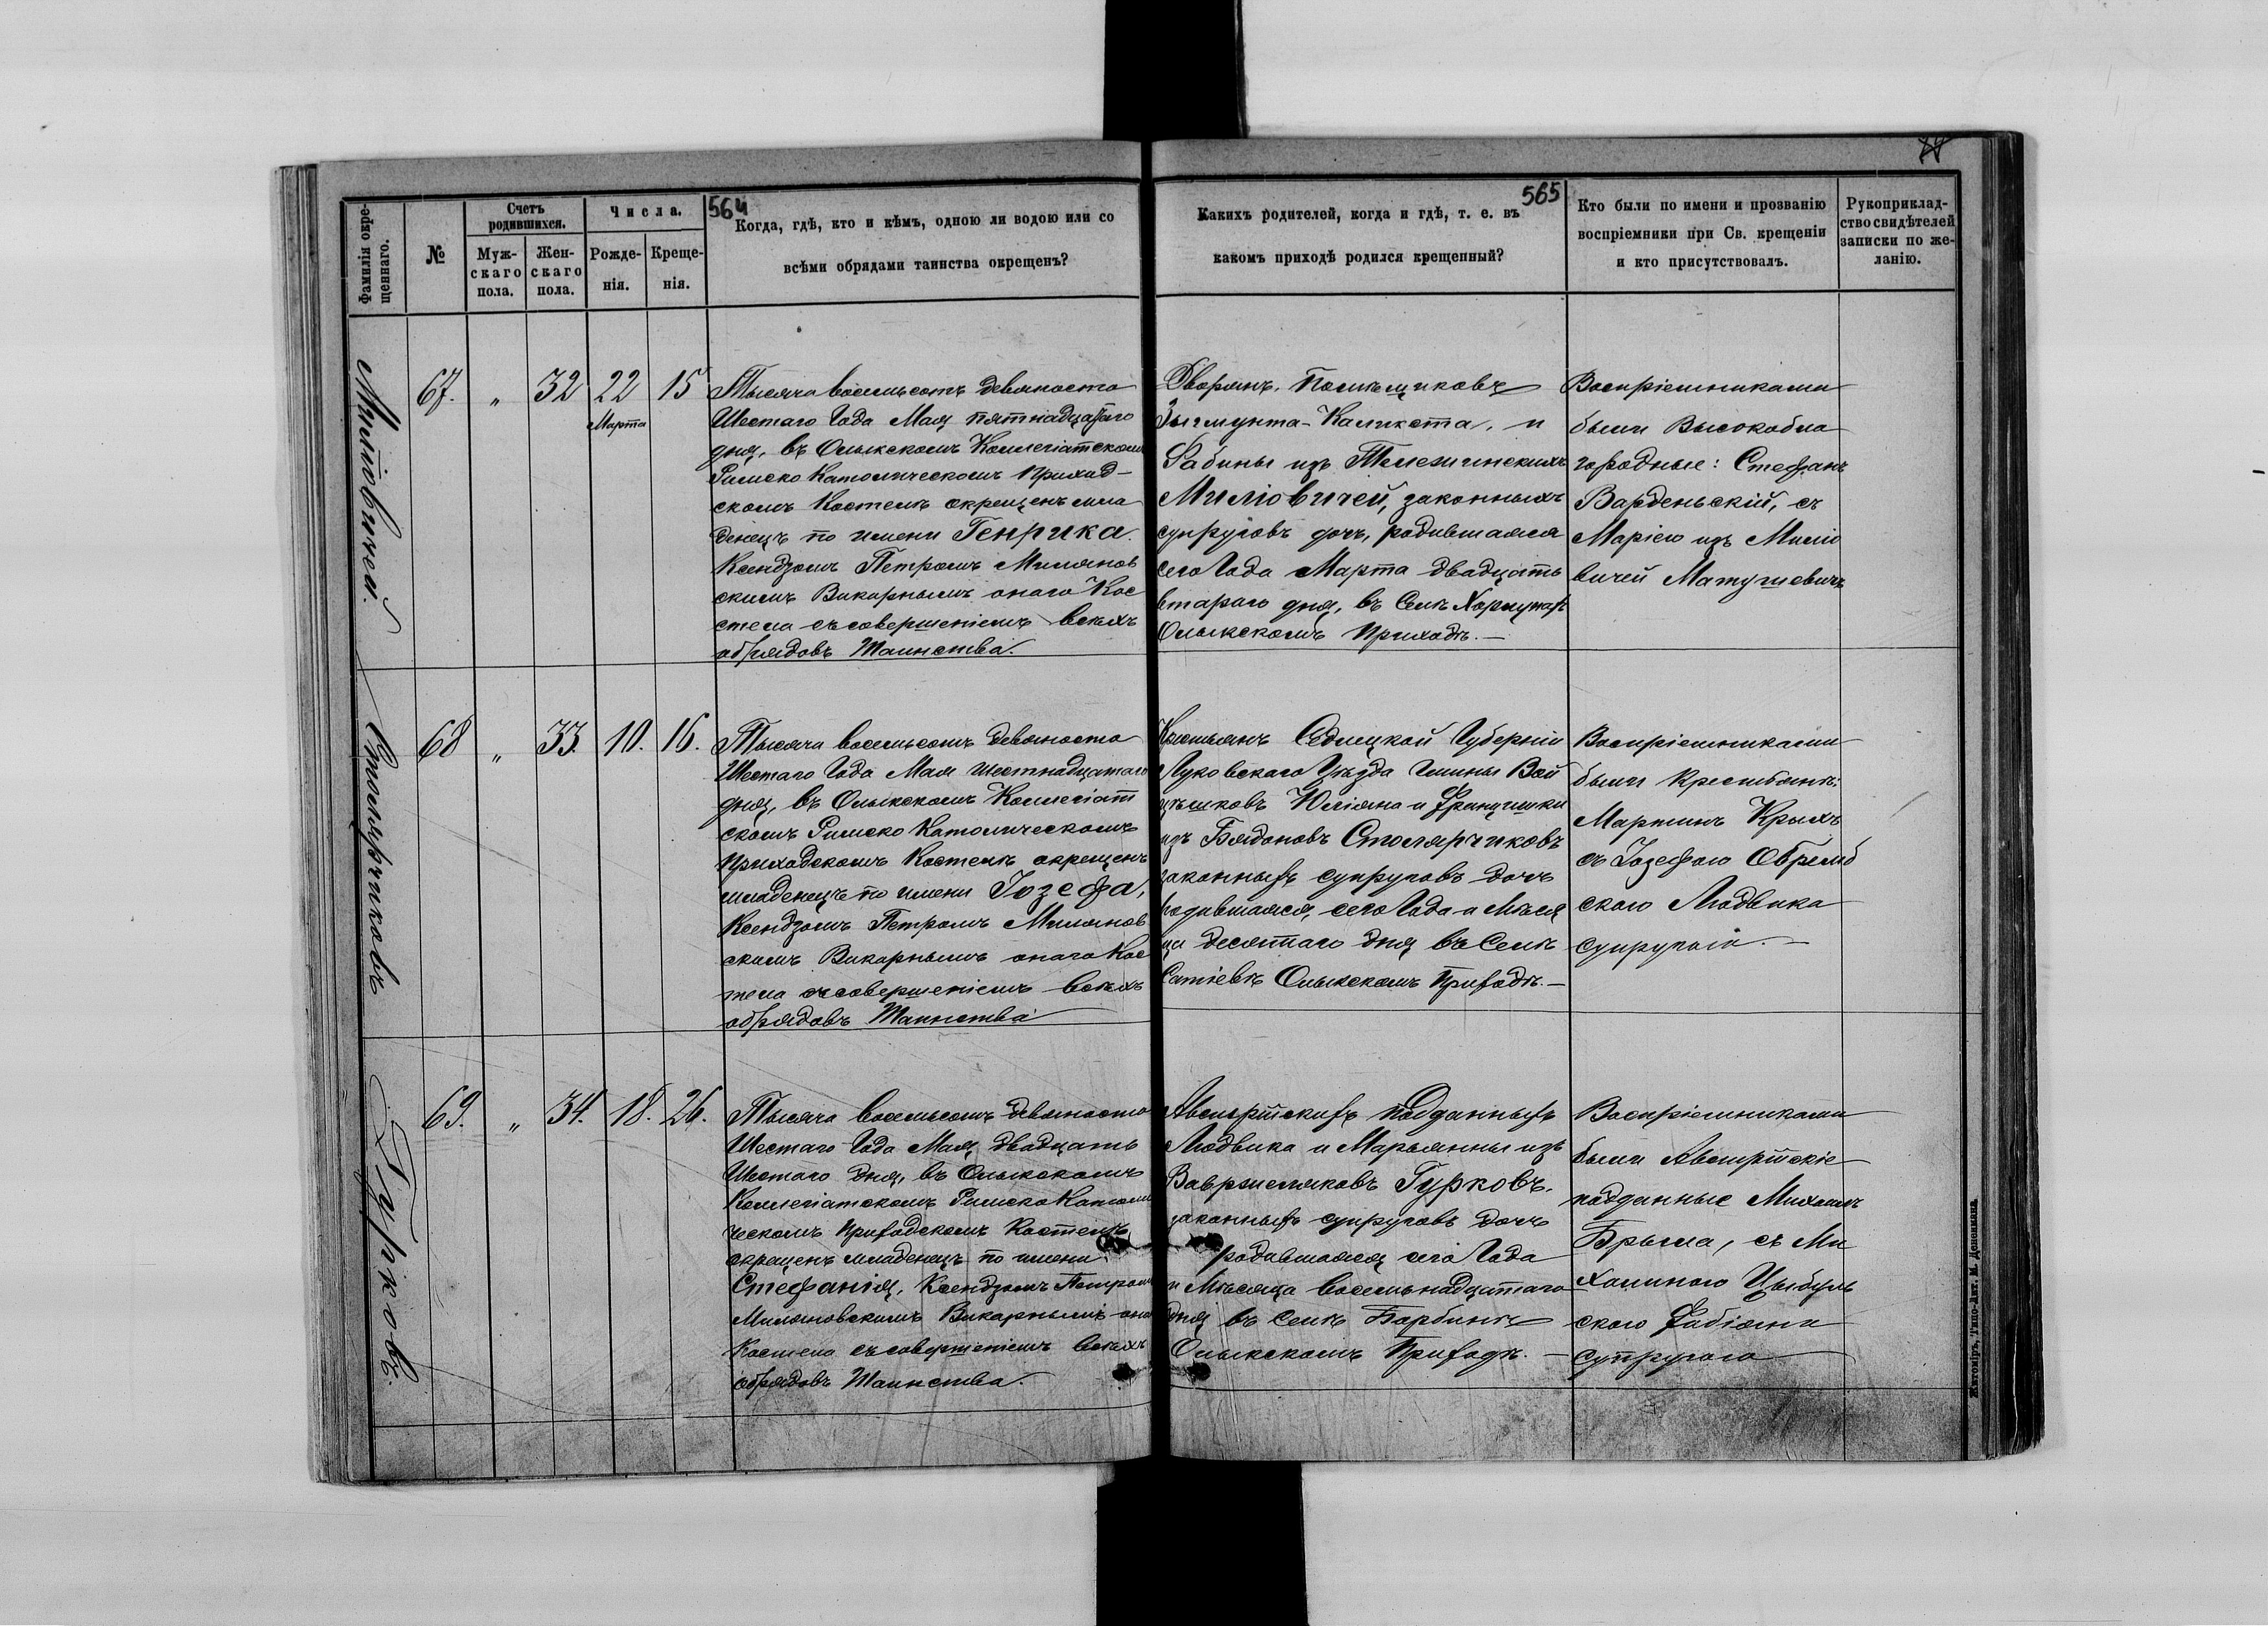 564
565
Фамилія окре-
щеннаго.
№
Счетъ
родившихся.
Муж-
скаго
пола.
Жен-
скаго
пола.
Числа.
Рожде-
нія.
Креще-
нія.
Когда, гдѣ, кто и кѣмъ, одною ли водою или со
всѣми обрядами таинства окрещенъ?
Какихъ родителей, когда и гдѣ, т. е. въ
какомъ приходѣ родился крещенный?
Кто были по имени и прозванію
воспріемники при Св. крещеніи
и кто присутствовалъ.
Рукоприклад-
ство свидѣтелей
записки по же-
ланію.
Миліовичей.
67. „ 32 22 15
Марта
Тысяча восемьсотъ девяносто
Шестаго Года Мая пятнадцатаго
дня, въ Олыкскомъ Коллегіатскомъ
Римско Католическомъ Приход-
скомъ Костелѣ окрещенъ мла
денецъ по имени Генрика.
Ксендзомъ Петромъ Миляновс
скимъ Викарнымъ онаго Кос
стела съ совершеніемъ всѣхъ
обрядовъ Таинства.
Дворянъ, Помѣщиковъ
Зыгмунта-Каликста, и
Сабины изъ Телезинскихъ
Миліовичей, законныхъ
супруговъ дочь, родившаяся
сего Года Марта двадцать
втораго дня, въ Селѣ
Олыкскомъ Приходѣ.—
Воспріемниками
были Высокобла
городные: Стефанъ
Варденьскій, съ
Маріею изъ Миліо
вичей Матушевичъ
Столярчиковъ
68 „ 33. 10. 16.
Тысяча восемьсотъ девяносто
Шестаго Года Мая шестнадцатаго
дня, въ Олыкскомъ Коллегіат
скомъ Римско Католическомъ
Приходскомъ Костелѣ окрещенъ
младенецъ по имени Іозефа,
Ксендзомъ Петромъ Миляновс
скимъ Викарнымъ онаго Кос
тела съ совершеніемъ всѣхъ
обрядовъ Таинства
Крестьянъ Седлецкой Губерніи
Луковскаго Уѣзда Гмины Вой
цѣшковъ Юліяна и Францишки
изъ Столярчиковъ
законныхъ супруговъ дочь
родившаяся, сего Года и Мѣся
ца десятаго дня въ Селѣ
Олыкскомъ Приходѣ.—
Воспріемниками
были Крестьяне:
Мартинъ Крыхъ
съ Іозефою Обремб
скою Людвика
супругою.—
Гурковъ.
69. „ 34. 18. 26.
Тысяча восемьсотъ девяносто
Шестаго Года Мая, двадцать
Шестаго дня, въ Олыкскомъ
Коллегіатскомъ Римско Католи
ческомъ Приходскомъ Костелѣ
окрещенъ младенецъ по имени
Стефанія, Ксендзомъ Петромъ
Миляновскимъ Викарнымъ она
Костела съ совершеніемъ всѣхъ
обрядовъ Таинства.
Австрійскихъ подданныхъ
Людвика и Марьянны изъ
Вавржесяковъ Гурковъ,
законныхъ супруговъ дочь
родившаяся, сего Года
и Мѣсяца восемьнадцатаго
дня въ Селѣ
Олыкскомъ Приходѣ.—
Воспріемниками
были Австрійскіе
подданные Михаилъ
Брыла, съ Ми
халиною Цыбуль
скою Фабіяна
супругою
Житоміръ, Типо-Лит. М. Дененмана.